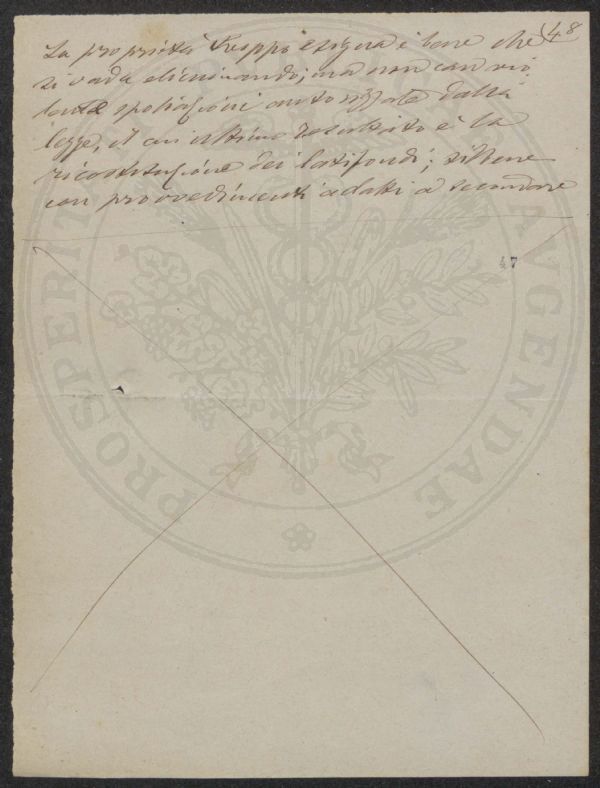 48
La proprietà troppo esigua è bene che
si vada eliminando; ma non con vio-
lente spoliazioni autorizzate dalla
legge, il cui ultimo resultato è la
ricostituzione dei latifondi; sibbene
con provvedimenti adatti a secondare
47
PROSPERITATI PUBLICAE AVGENDAE